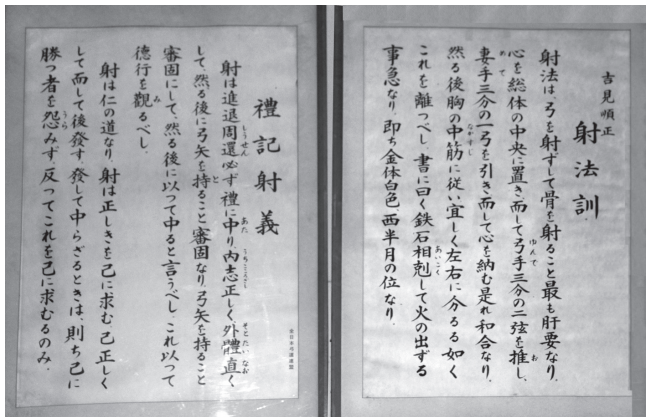 射法訓
吉見順正
射法は、弓を射ずして骨を射ること最も肝要なり、
心を総体の中央に置き而して弓手三分の二弦を推し、
妻手三分の一弓を引き而して心を納む是れ和合なり、
然る後胸の中筋に従い宜しく左右に分るる如く
これを離つべし、書に曰く鉄石相剋して火の出ずる
事急なり、即ち金体白色、西半月の位なり、
禮記射義
射は進退周還必ず禮に中り、内志正しく、外體直く
して、然る後に弓矢を持ること審固なり、弓矢を持ること
審固にして、然る後に以つて中ると言うべし、これ以つて
徳行を觀るべし、
射は仁の道なり、射は正しきを己に求む、己正しく
して而して後發す、發して中らざるときは、則ち己に
勝つ者を怨みず、反つてこれを己に求むるのみ、
全日本弓道連盟